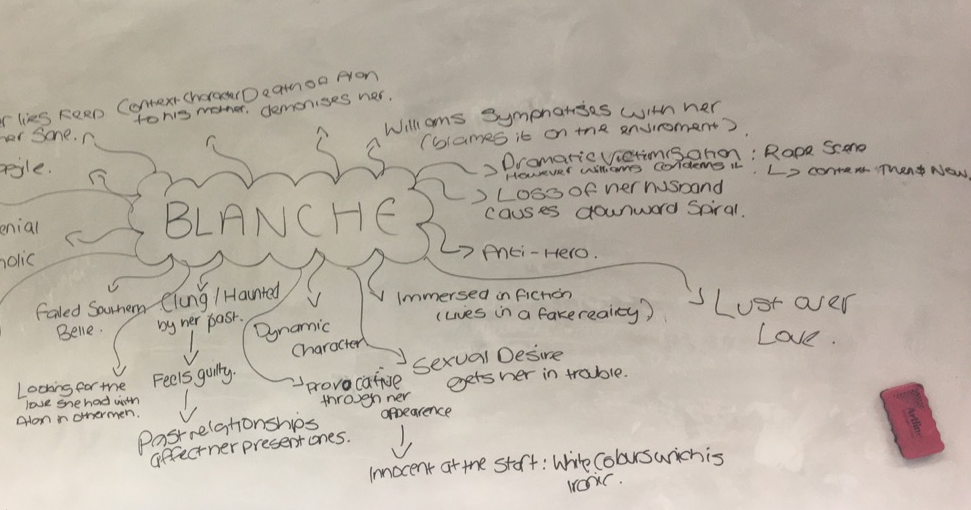 r lies keep
her sane.
Context-Character Death of Alan
to his mother. demonises her.
Williams Symphatises with her
(blames it on the enviroment).
Dramatic Victimisation : Rape Scene
However williams condemns it. ↳ context Then & Now.
Loss of her husband
causes downward spiral.
BLANCHE
enial
holic
Anti-Hero.
Lust over
Love.
Immersed in fiction
(Lives in a fake reality)
Failed Southern
Belle.
Clung / Haunted
by her past.
Feels guilty.
Past relationships
affect her present ones.
Dynamic
Character
Looking for the
love she had with
Alan in other men.
Provocative
through her
appearence
Sexual Desire
gets her in trouble.
Innocent at the start : White Colours which is
ironic.
Artline